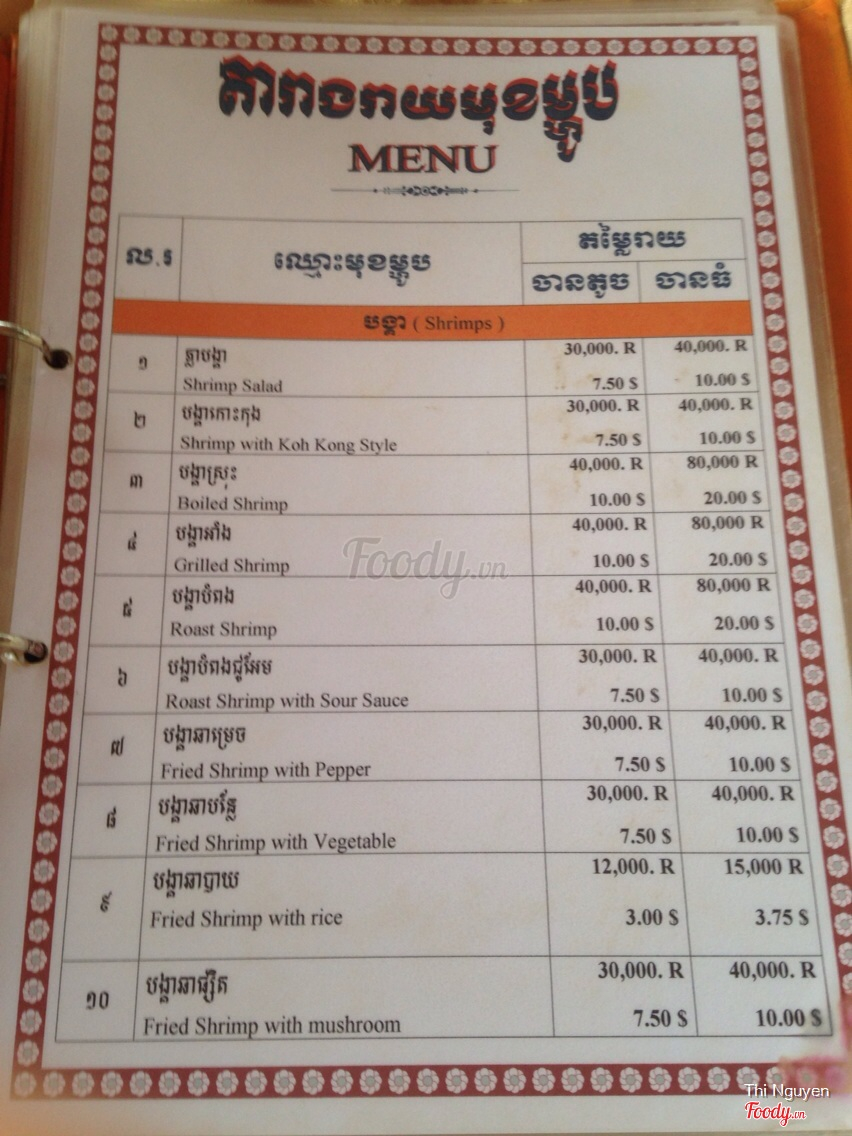 តារាងរាយមុខម្ហូប
MENU
ល.រ
ឈ្មោះមុខម្ហូប
តម្លៃរាយ
ចានតូច ចានធំ
បង្គា ( Shrimps )
១ ភ្លាបង្គា 30,000. R 40,000. R
Shrimp Salad 7.50 $ 10.00 $
២ បង្គាកោះកុង 30,000. R 40,000. R
Shrimp with Koh Kong Style 7.50 $ 10.00 $
៣ បង្គាស្រុះ 40,000. R 80,000 R
Boiled Shrimp 10.00 $ 20.00 $
៤ បង្គាអាំង 40,000. R 80,000 R
Grilled Shrimp 10.00 $ 20.00 $
៥ បង្គាបំពង 40,000. R 80,000 R
Roast Shrimp 10.00 $ 20.00 $
៦ បង្គាបំពងជូរអែម 30,000. R 40,000. R
Roast Shrimp with Sour Sauce 7.50 $ 10.00 $
៧ បង្គាឆាម្រេច 30,000. R 40,000. R
Fried Shrimp with Pepper 7.50 $ 10.00 $
៨ បង្គាឆាបន្លែ 30,000. R 40,000. R
Fried Shrimp with Vegetable 7.50 $ 10.00 $
៩ បង្គាឆាបាយ 12,000. R 15,000 R
Fried Shrimp with rice 3.00 $ 3.75 $
១០ បង្គាឆាផ្សិត 30,000. R 40,000. R
Fried Shrimp with mushroom 7.50 $ 10.00 $
Foody.vn
Thi Nguyen
Foody.vn